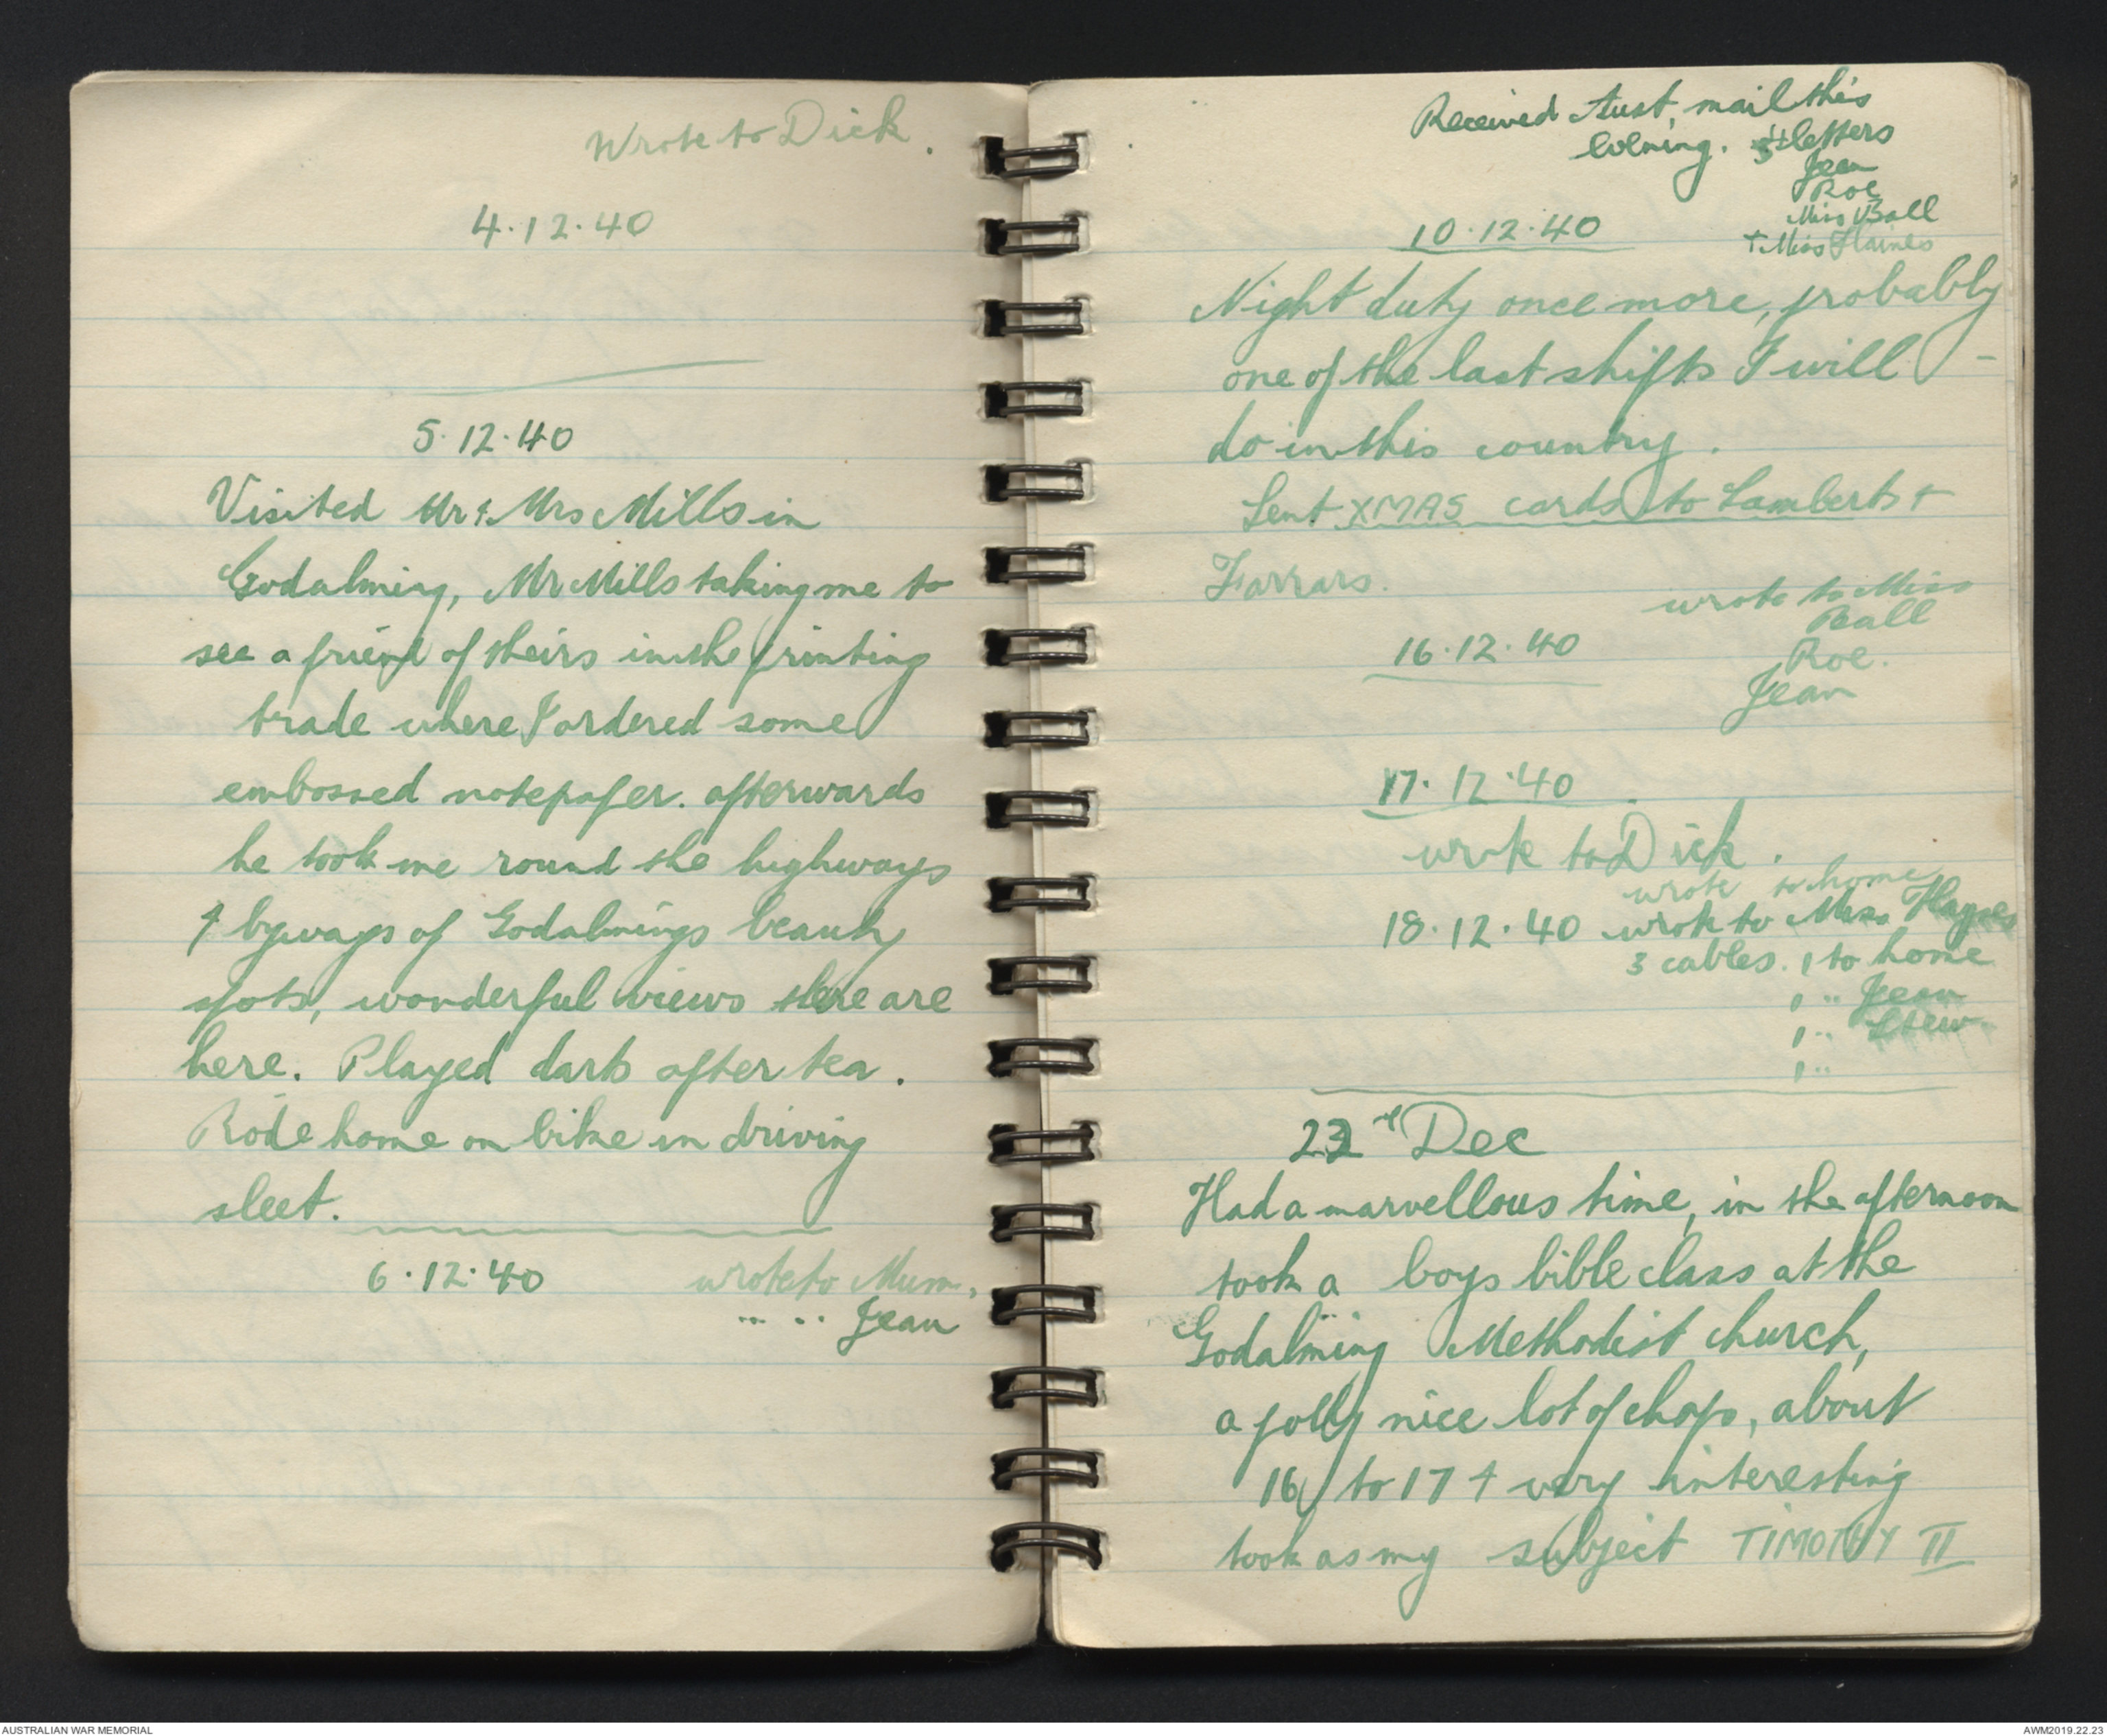 Wrote to Dick.
4.12.40
5.12.40
Visited Mr & Mrs Mills in
Godalming, Mr Mills taking me to
see a friend of theirs in the printing
trade where I ordered some
embossed notepaper. afterwards
he took me round the highways
& byways of Godalmings beauty
spots, wonderful views there are
here. Played darts after tea.
Rode home on bike in driving
sleet.
6.12.40 wrote to Mum,
" " Jean
Received Aust. mail this
evening. letters
Jean
Roe
Miss Ball
+ Miss Haines
10.12.40
Night duty once more, probably
one of the last shifts I will -
do in this country.
Sent XMAS cards to Lamberts +
Farrars.
wrote to Miss
Ball
16.12.40 Roe.
Jean
17.12.40
wrote to Dick.
wrote to home
18.12.40 wrote to Miss
3 cables. 1 to home
1 " Jean
1 " Stew
1 "
Dec
Had a marvellous time, in the afternoon
took a boys bible class at the
Godalming Methodist church,
a jolly nice lot of chaps, about
16 to 17 & very interesting
took as my subject TIMOTHY II
AUSTRALIAN WAR MEMORIAL AWM2019.22.23